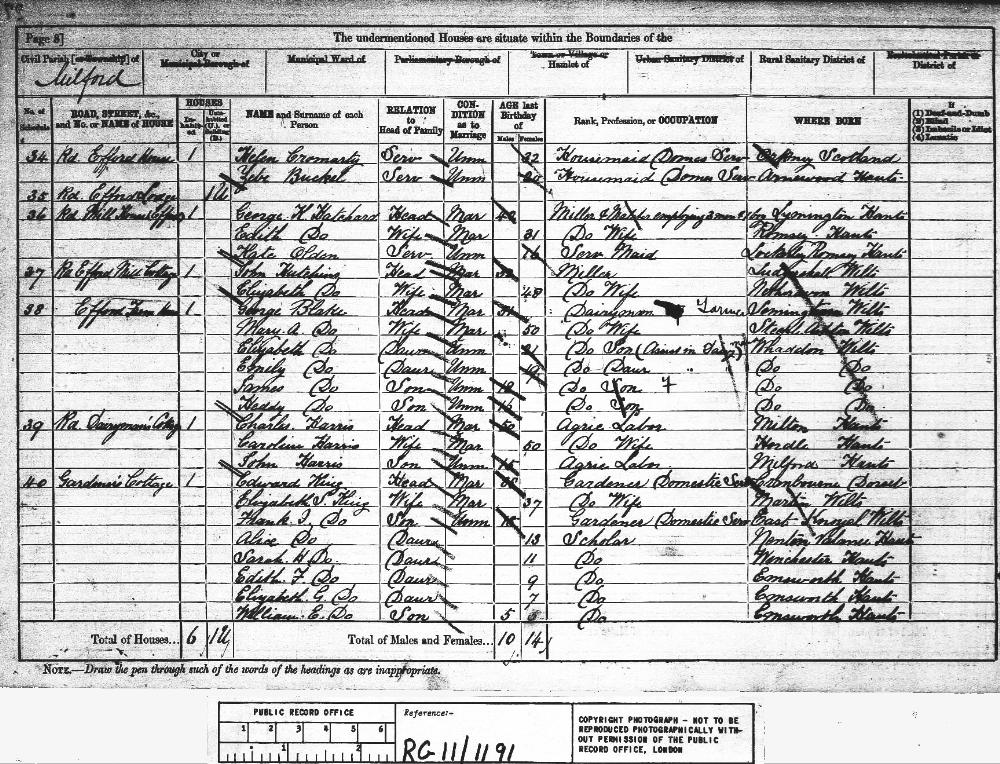 Page 8]
The undermentioned Houses are situate within the Boundaries of the
Civil Parish [or Township] of
City or Municipal Borough of
Municipal Ward of
Parliamentary Borough of
Town or Village or Hamlet of
Urban Sanitary District of
Rural Sanitary District of
Ecclesiastical Parish or District of
Milford
No. of Schedule
ROAD, STREET, &c., and No. or NAME of HOUSE
HOUSES
Inhabited
Uninhabited (U.), or Building (B.)
NAME and Surname of each Person
RELATION to Head of Family
CONDITION as to Marriage
AGE last Birthday of
Males
Females
Rank, Profession, or OCCUPATION
WHERE BORN
If
(1) Deaf-and-Dumb
(2) Blind
(3) Imbecile or Idiot
(4) Lunatic
34 Rd. Efford House 1 Helen Cromarty Serv Unm 22 Housemaid (Domes Serv Orkney Scotland
Buckel Serv Unm 20 Housemaid (Domes Serv Arnewood Hants
35 Rd. Efford Lodge 1U
36 Rd. Mill House Efford 1 George H Hatchard Head Mar 42 Miller & employing 3 men & boy Lymington Hants
Edith Do Wife Mar 31 Do Wife Romsey Hants
Kate Olden Serv Unm 16 Serv Maid Lockerley Romsey Hants
37 Rd Efford Mill Cottage 1 John Hutchins Head Mar Miller Ludgershall Wilts
Elizabeth Do Wife Mar 48 Do Wife Wilts
38 Efford Farm 1 George Blake Head Mar Dairyman Farmer Semington Wilts
Mary A. Do Wife Mar 50 Do Wife Steeple Ashton Wilts
Elizabeth Do Daur Unm 21 Do (Assist in Dairy) Whaddon Wilts
Emily Do Daur Unm 19 Do Daur Do Do
James Do Son Unm 18 Do Son Do Do
Do Son Unm Do Son Do Do
39 Rd. Dairyman's Cottage 1 Charles Harris Head Mar 50 Agric Labor Milton Hants
Caroline Harris Wife Mar 50 Do Wife Hordle Hants
John Harris Son Unm 15 Agric Labor Milford Hants
40 Gardener's Cottage 1 Edward King Head Mar Gardener Domestic Serv Dorset
Elizabeth S. King Wife Mar 37 Do Wife Martin Wilts
Frank I. Do Son Unm Gardener (Domestic Serv East Knoyal Wilts
Alice Do Daur 13 Scholar Newton Valance Hants
Sarah H Do Daur 11 Do Winchester Hants
Edith F. Do Daur 9 Do Emsworth Hants
Elizabeth G. Do Daur 7 Do Emsworth Hants
William E. Do Son 5 Do Emsworth Hants
Total of Houses... 6 1U
Total of Males and Females... 10 14
NOTE.—Draw the pen through such of the words of the headings as are inappropriate.
PUBLIC RECORD OFFICE
1 2 3 4 5 6
1 2
Reference:-
RG 11/1191
COPYRIGHT PHOTOGRAPH - NOT TO BE
REPRODUCED PHOTOGRAPHICALLY WITH-
OUT PERMISSION OF THE PUBLIC
RECORD OFFICE, LONDON